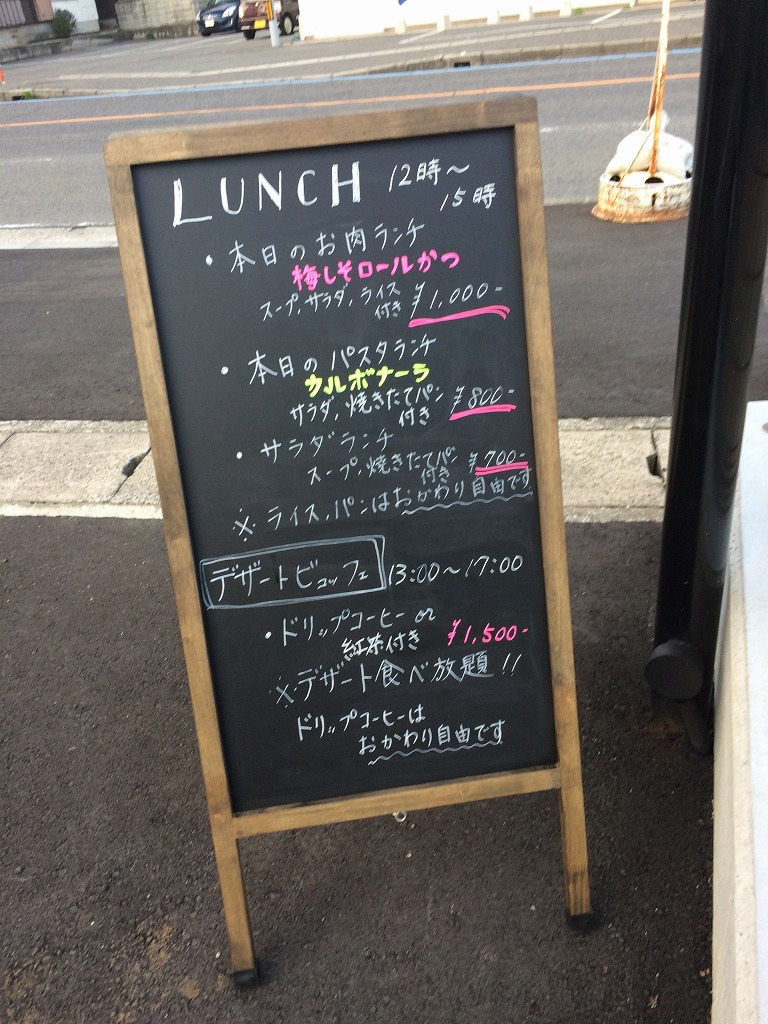 LUNCH 12時〜
15時
・本日のお肉ランチ
梅しそロールかつ
スープ,サラダ,ライス
付き ¥1,000-
・本日のパスタランチ
カルボナーラ
サラダ,焼きたてパン
付き ¥800-
・サラダランチ
スープ,焼きたてパン
付き ¥700-
※ライス,パンはおかわり自由です
デザートビュッフェ 13:00〜17:00
・ドリップコーヒー or
紅茶付き ¥1,500-
※デザート食べ放題!!
ドリップコーヒーは
おかわり自由です